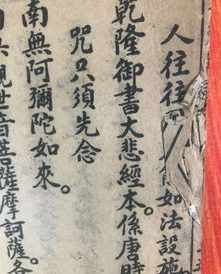 人往往
如法設施
乾隆御書大悲經本係唐時
咒只須先念
南無阿彌陀如來。
觀世音菩薩摩訶薩。各